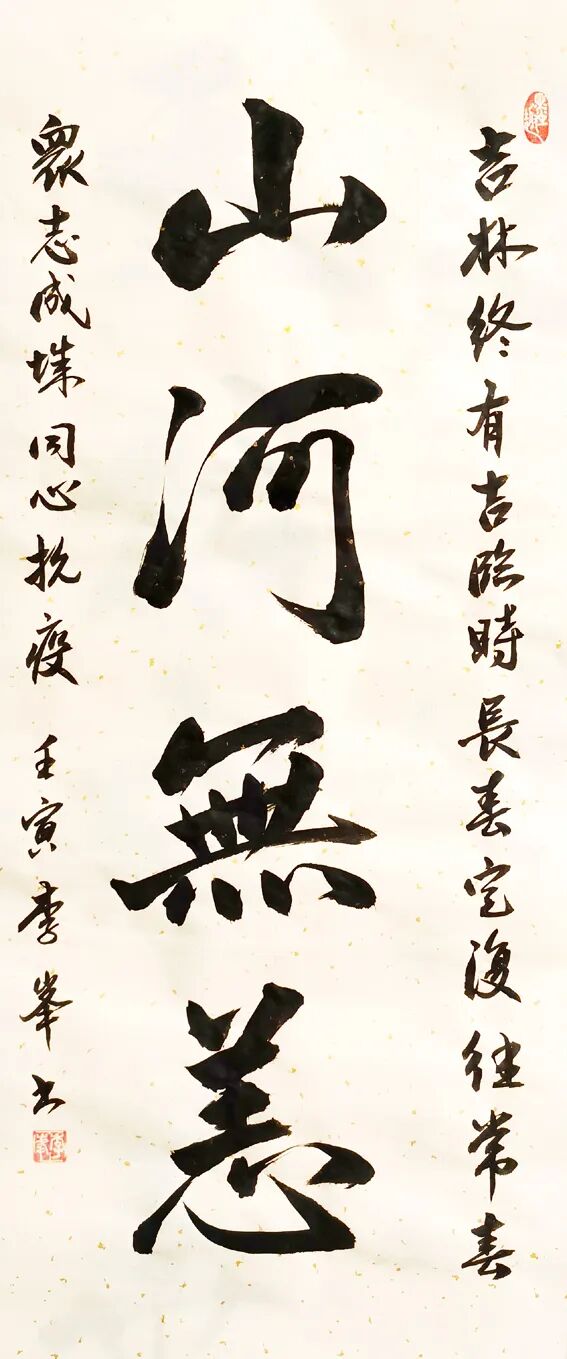 吉林終有吉臨時長春定復往常春
山河無恙
眾志成城同心抗疫 壬寅李峯书